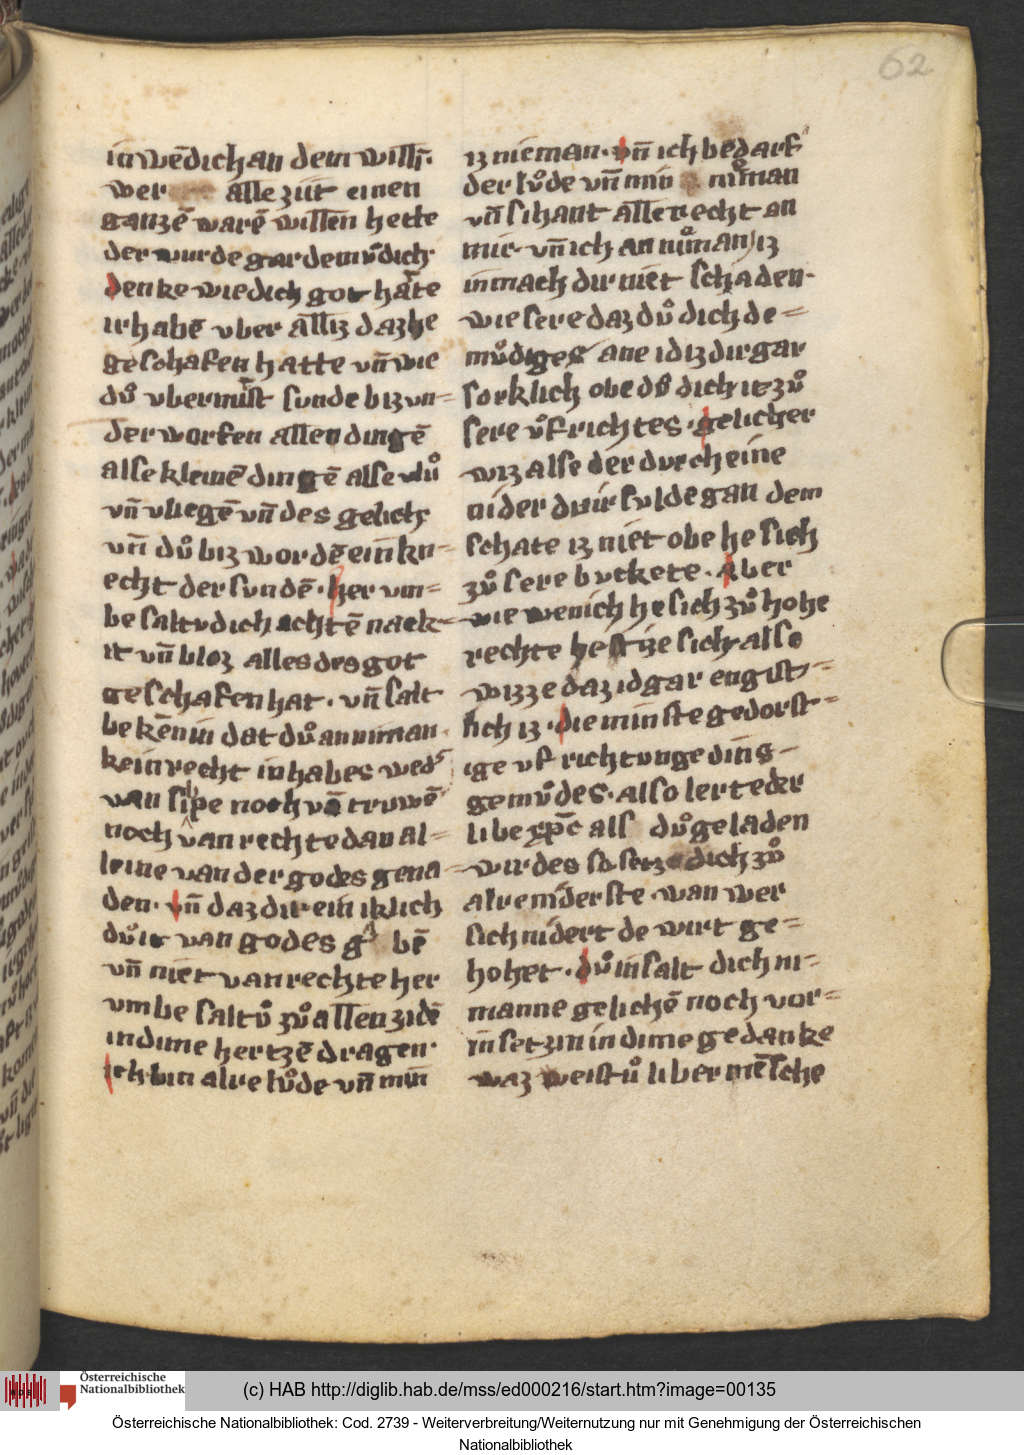 62
inwēdich an dem willī·
wer alle ziit einen
ganzē warē willen hette
der wurde gar demv̊dich·
denke wie dich got hatte
irhabē vber alliz daz he
geschafen hatte vn̄ wie
dů vbermist sunde biz vn=
der worfen allen dingē
alse kleinē dingē alse vlů
vn̄ vliegē vn̄ des gelich
vn̄ dů biz wordē ein kn=
echt der sundē· her vm=
be saltv dich achtē nack=
it vn̄ bloz alles des got
geschafen hat· vn̄ salt
bekēnin dat dů an niman·
kein recht in habes wed'
van sipe noch vā truwē
noch van rechte dan al=
leine van der godes gena=
den· vn̄ daz dir ein iklich
důit van godes g bē
vn̄ niet van rechte her
vmbe saltv̊ zů allen zidē
in dime hertzē dragen·
ich bin alre lůde vn̄ min
iz nieman· vn̄ ich bedarf
der lůde vn̄ min niman
vn̄ si hant alle recht an
mir· vn̄ ich an nůman iz
inmach dir niet schaden·
wie sere daz dů dich de=
mv̊diges ane id iz dir gar
sorklich obe dů dich it zů
sere ůfrichtes· gelicher
wiz alse der durch eine
nider duir sulde gan dem
schate iz niet obe he sich
zů sere buckete· aber
wie wenich he sich zů hohe
rechte he stize sich also
wizze daz id gar engist=
lich iz· die minste gedorst=
ige vf richtunge dins
gemůdes· also lerte der
libe xp̄c als dů geladen
wirdes so setze dich zů
alre niderste· wan wer
sich nidert de wirt ge=
hohet· dů insalt dich ni=
manne gelichē noch vor=
in setzin in dime gedanke
waz weistů liber mēsche
(c) HAB http://diglib.hab.de/mss/ed000216/start.htm?image=00135
Österreichische
Nationalbibliothek
Österreichische Nationalbibliothek: Cod. 2739 - Weiterverbreitung/Weiternutzung nur mit Genehmigung der Österreichischen
Nationalbibliothek